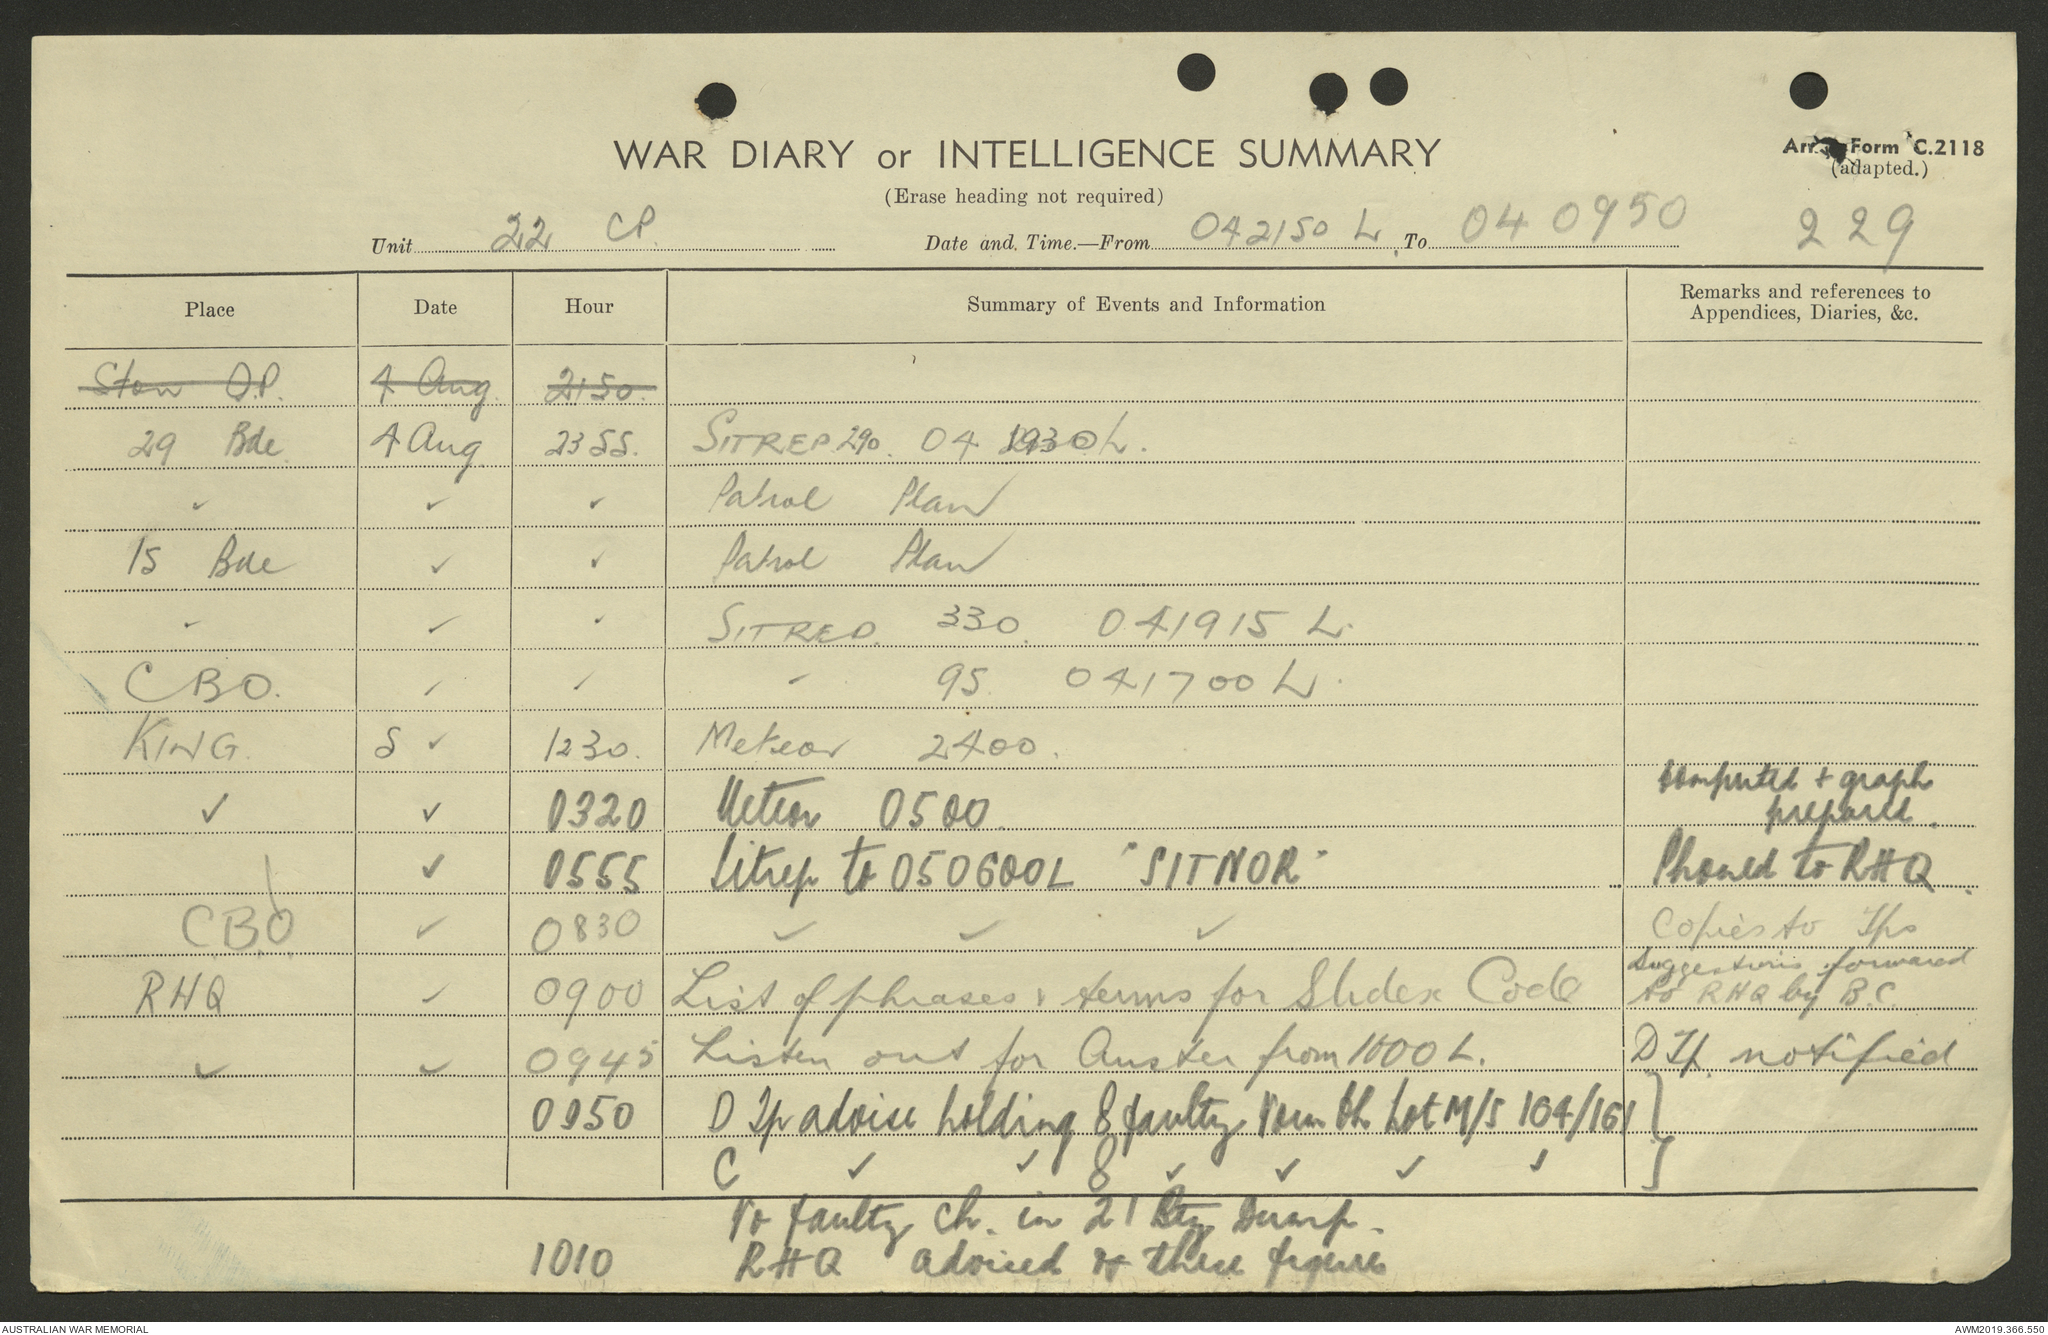 WAR DIARY or INTELLIGENCE SUMMARY
Army Form C.2118
(adapted.)
(Erase heading not required)
Unit 22 CP. Date and Time.—From 042150 L To 040950 229
Place Date Hour Summary of Events and Information Remarks and references to
Appendices, Diaries, &c.
Stow O.P. 4 Aug 2150.
29 Bde 4 Aug. 2355. SITREP 290. 04 1930 L.
✓ ✓ ✓ Patrol Plan
15 Bde ✓ ✓ Patrol Plan
✓ ✓ ✓ SITREP. 330. 041915 L.
CBO. ✓ ✓ " 95. 041700 L.
KING. 5 ✓ 1230. Meteor 2400.
✓ ✓ 0320 Meteor 0500. Computed + graph
prepared.
✓ 0555 Sitrep to 050600L "SITNOR" Phoned to RHQ.
C.B.O ✓ 0830 ✓ ✓ ✓ Copies to Tps
RHQ ✓ 0900 List of phrases & terms for Slidex Code Suggestions forwarded
to RHQ by B.C.
✓ ✓ 0945 Listen out for Auster from 1000 L. D Tp. notified
0950 D Tp advise holding 8 faulty Lot M/S 104/161 }
C ✓ ✓ 8 ✓ ✓ ✓ ✓ }
No faulty ch. in 21 Bty Dump.
1010 RHQ advised of these figures